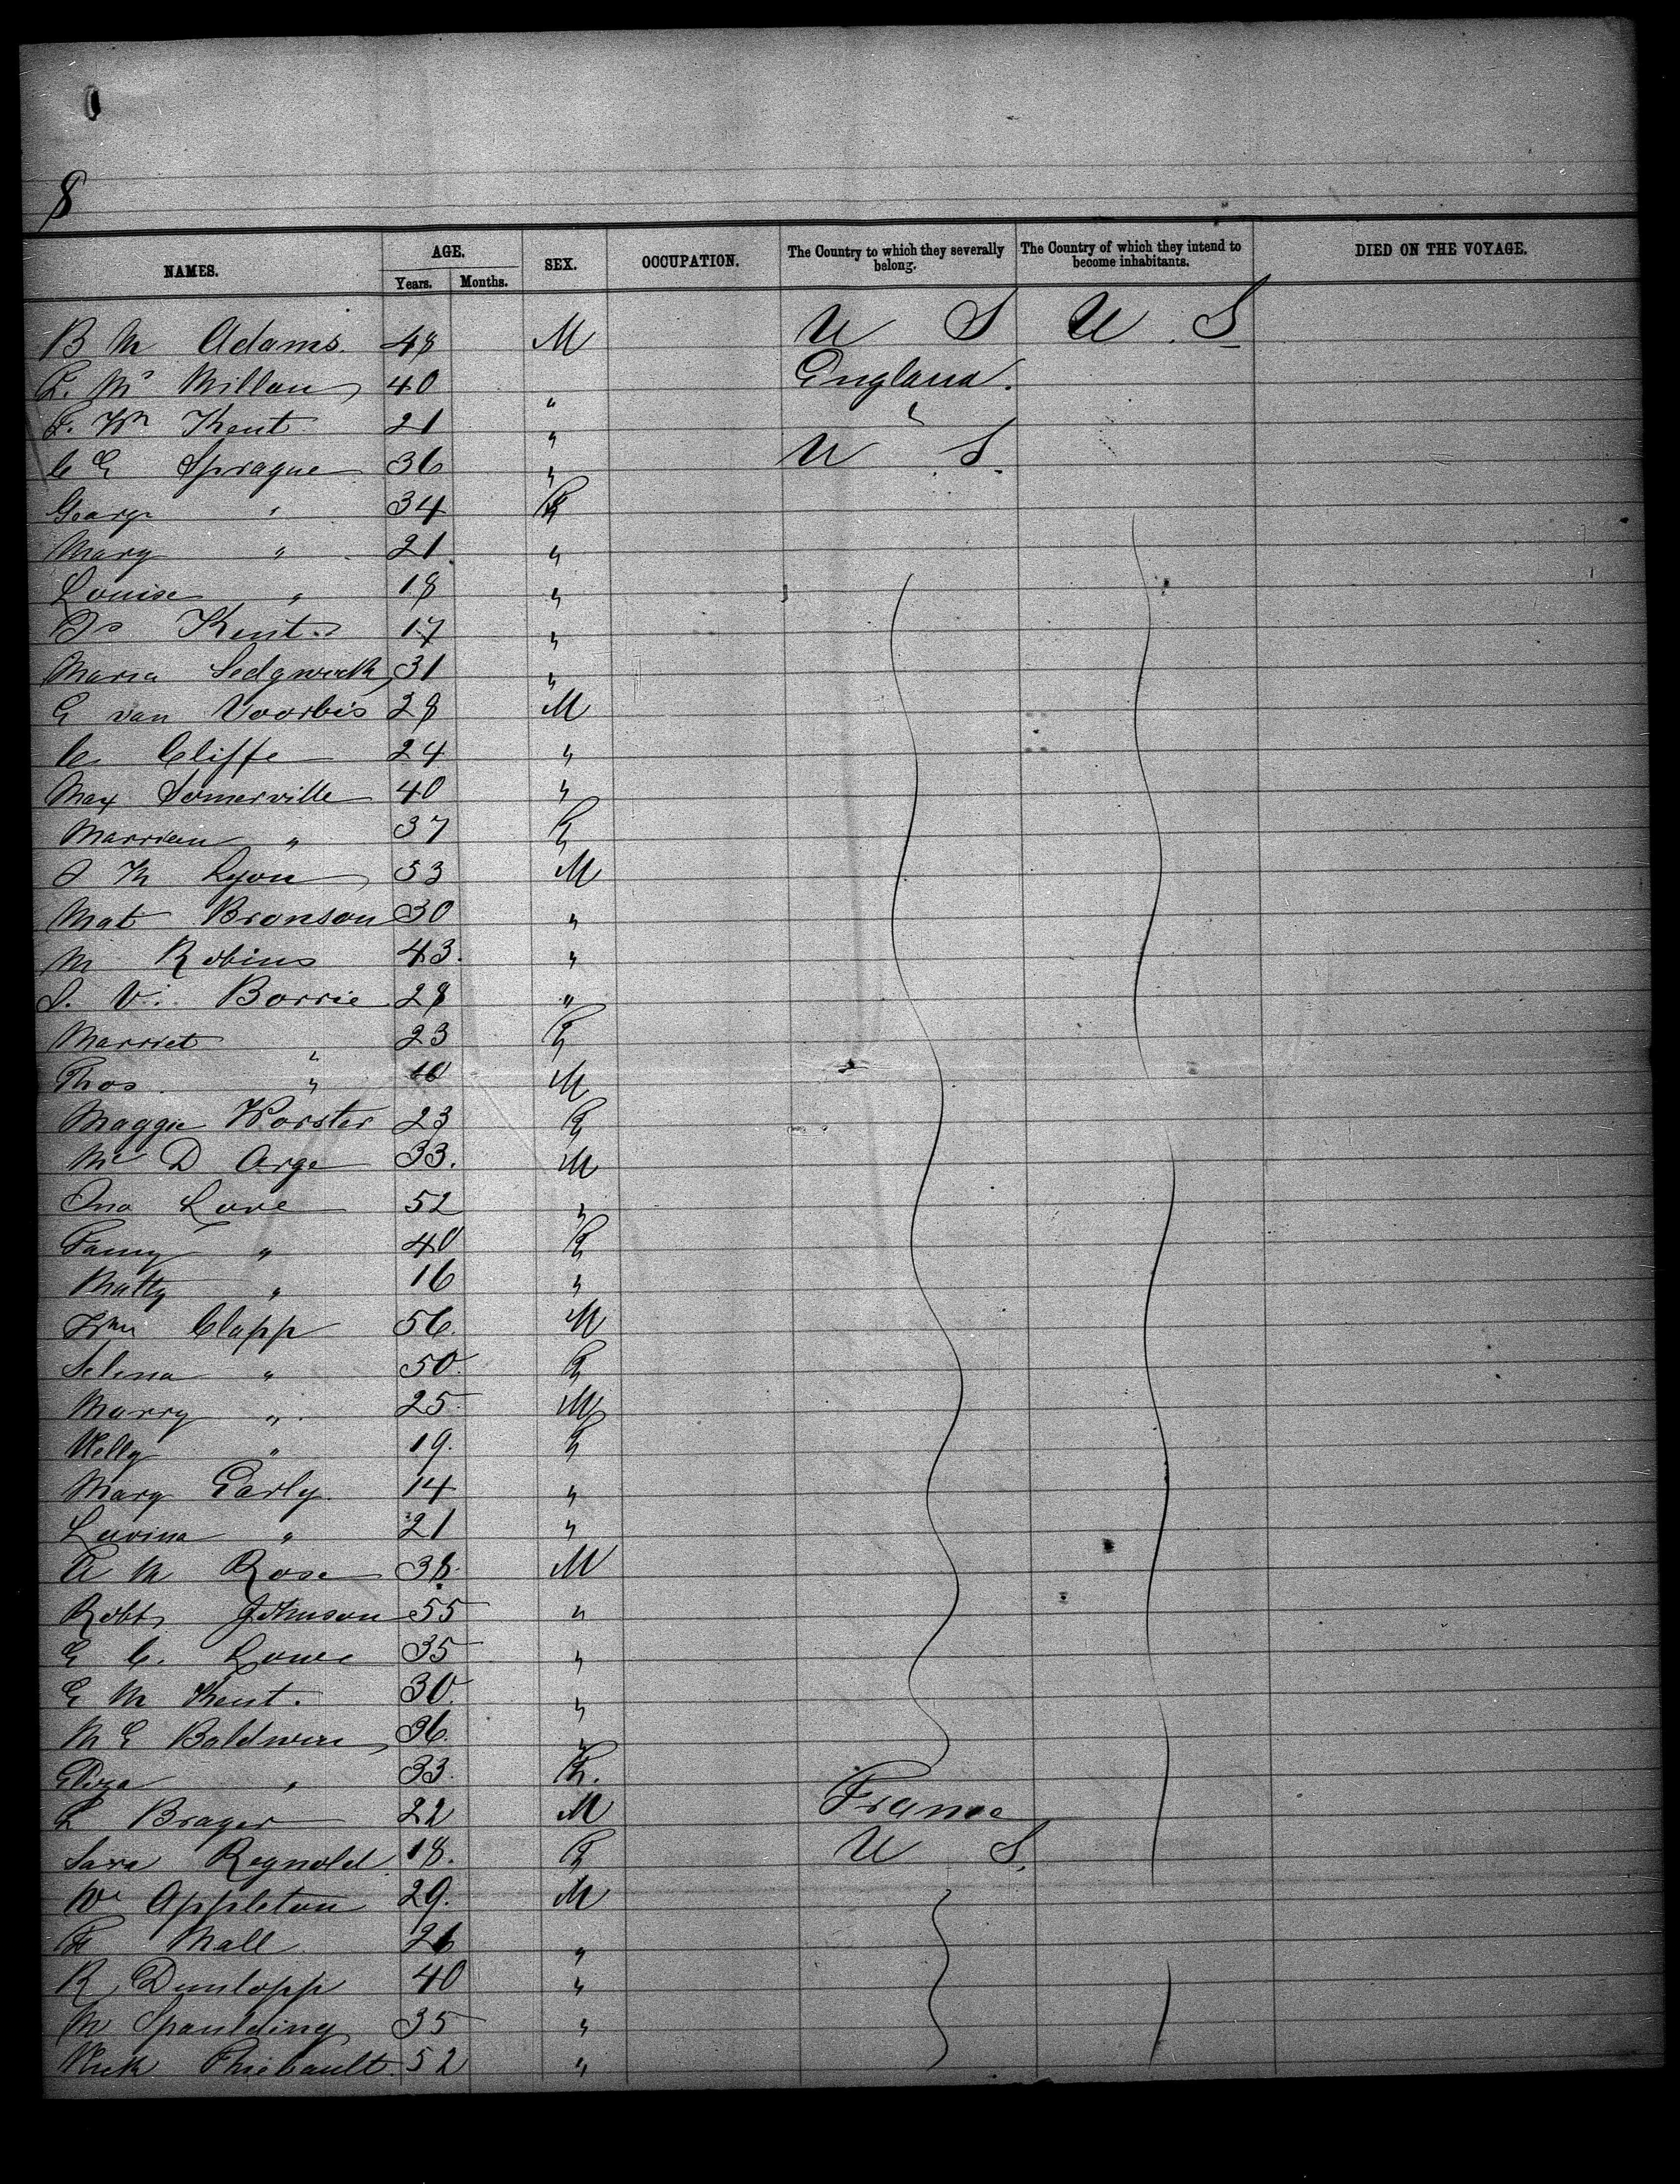 8
NAMES. AGE. Years. Months. SEX. OCCUPATION. The Country to which they severally belong. The Country of which they intend to become inhabitants. DIED ON THE VOYAGE.
B M Adams. 48 M U S U. S
Mc Millan 40 " England.
Wm Kent 21 " "
C E Sprague 36 " U S.
George " 34 F
Mary " 21 "
Louise " 18 "
Kent 17 "
Maria Sedgwick 31 "
E van Voorbis 28 M
C. Cliffe 24 "
Max Somerville 40 "
Marrian " 37 F
Lyon 53 M
Mat Bronson 30 "
M Robins 43. "
S. V. Borrie 28 "
Harriet " 23 F
Thos " 10 M
Maggie Worster 23 F
Mc D Arge 33. M
Love 52 "
Fanny " 40 F
Matty " 16 "
Wm Clapp 56. M
Selena " 50. F
Harry " 25 M
Nelly " 19. F
Mary Early. 14 "
Lavina " 21 "
A M Rose 38. M
Robt Johnson 55 "
E C. Lowe 35 "
E M Kent. 30. "
M E Baldwin 36. "
Eliza " 33. F.
Brager 22 M France
Sara Regnold 18. F U S.
Appleton 29. M
F Hall 26 "
R Dunlopp 40 "
M Spaulding 35 "
Thiebault 52 "